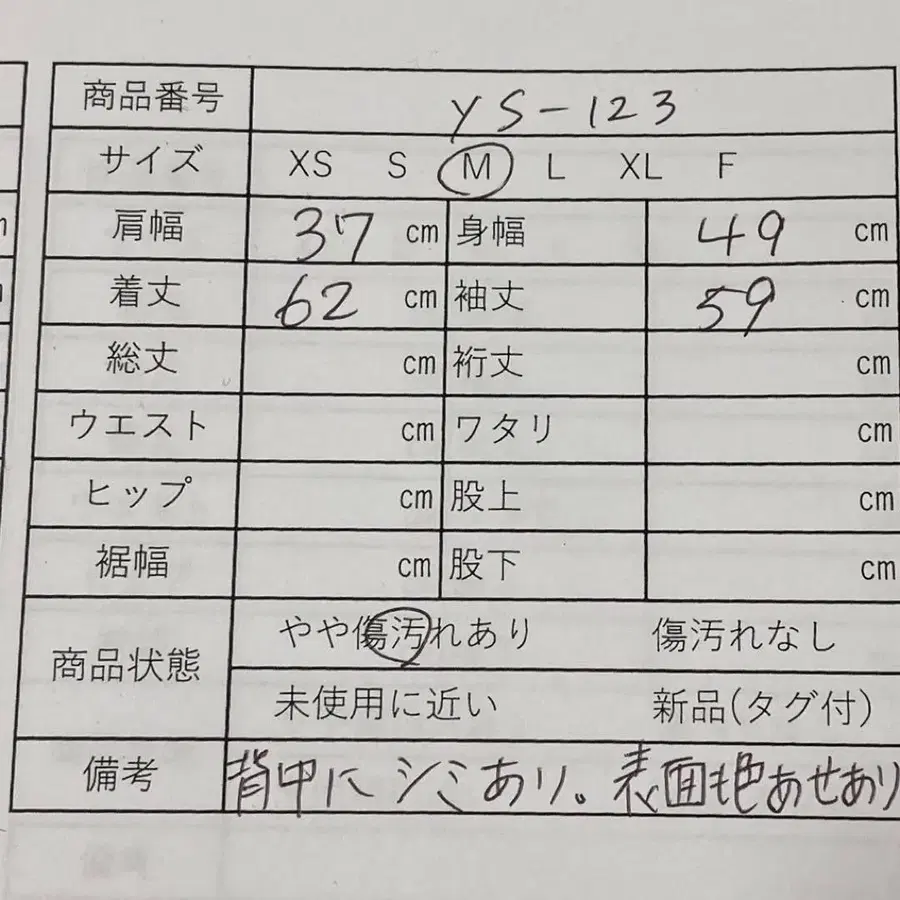 商品番号 YS-123
サイズ XS S M L XL F
肩幅 37 cm 身幅 49 cm
着丈 62 cm 袖丈 59 cm
総丈 cm 裄丈 cm
ウエスト cm ワタリ cm
ヒップ cm 股上 cm
裾幅 cm 股下 cm
商品状態 やや傷汚れあり 傷汚れなし
未使用に近い 新品(タグ付)
備考 背中にシミあり。表面も色あせあり